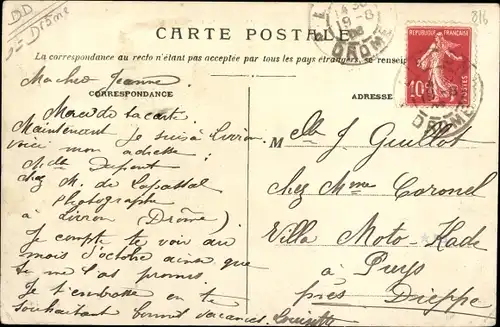 BD
Drôme
816
CARTE POSTALE
La correspondance au recto n'étant pas acceptée par tous les pays étrangers, se renseigner
CORRESPONDANCE
ADRESSE
RÉPUBLIQUE FRANÇAISE
10
POSTES
14 30
19 - 8
08
DROME
DROME
Ma chère Jeanne
Merci de ta carte
Maintenant je suis à Livron
voici mon adresse :
Mlle Dupont
chez M. de
Photographe
à Livron (Drôme)
Je compte te voir au
mois d'octobre ainsi que
tu me l'as promis
Je t'embrasse en te
souhaitant bonnes vacances. Louisette
Mlle J Guillot
chez Mme Coronel
Villa Moto-Kade
à Puys
près Dieppe